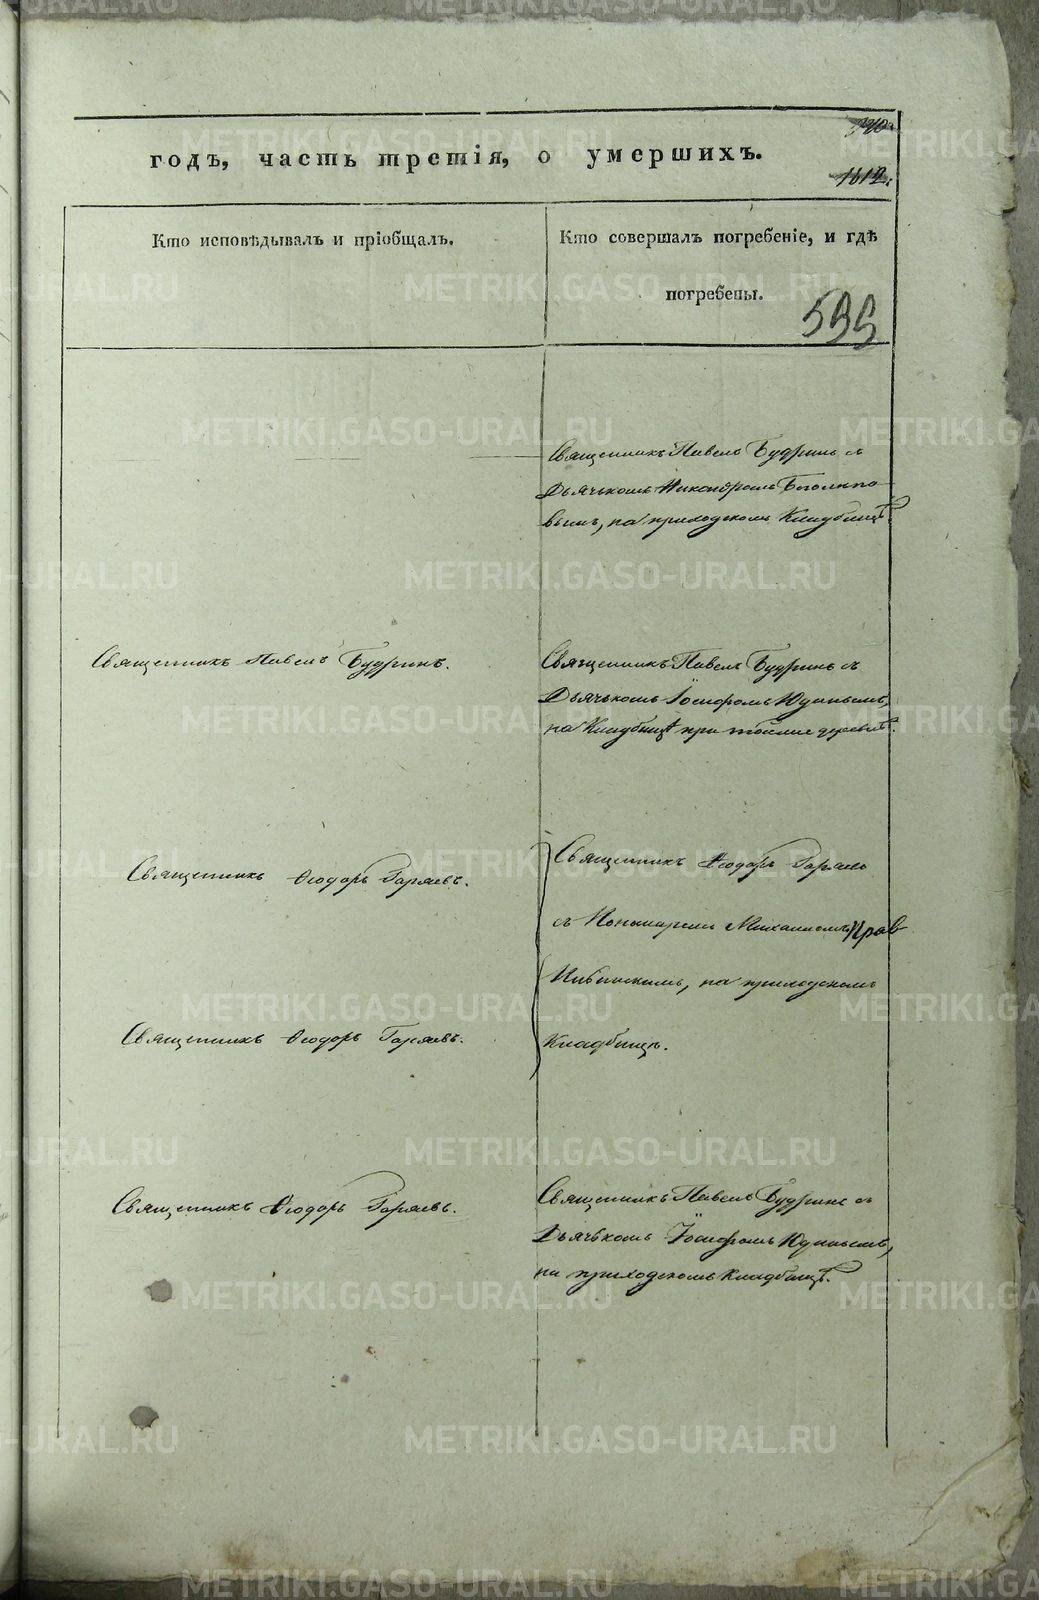 годъ, часть третія, о умершихъ.
1812.
Кто исповѣдывалъ и пріобщалъ.
Кто совершалъ погребеніе, и гдѣ
погребены.
Священникъ Павелъ Будринъ съ
Дьячькомъ Никандромъ
вымъ, на приходскомъ Кладбищѣ.
Священникъ Павелъ Будринъ.
Священникъ Павелъ Будринъ съ
Дьячькомъ Іосифомъ Юдинымъ,
на Кладбищѣ при деревнѣ.
Священникъ Ѳеодоръ Гаряевъ.
Священникъ Ѳеодоръ Гаряевъ
съ Пономаремъ Михаиломъ
на приходскомъ
Священникъ Ѳеодоръ Гаряевъ.
Кладбищѣ.
Священникъ Ѳеодоръ Гаряевъ.
Священникъ Павелъ Будринъ съ
Дьячькомъ Іосифомъ Юдинымъ,
на приходскомъ Кладбищѣ.
METRIKI.GASO-URAL.RU